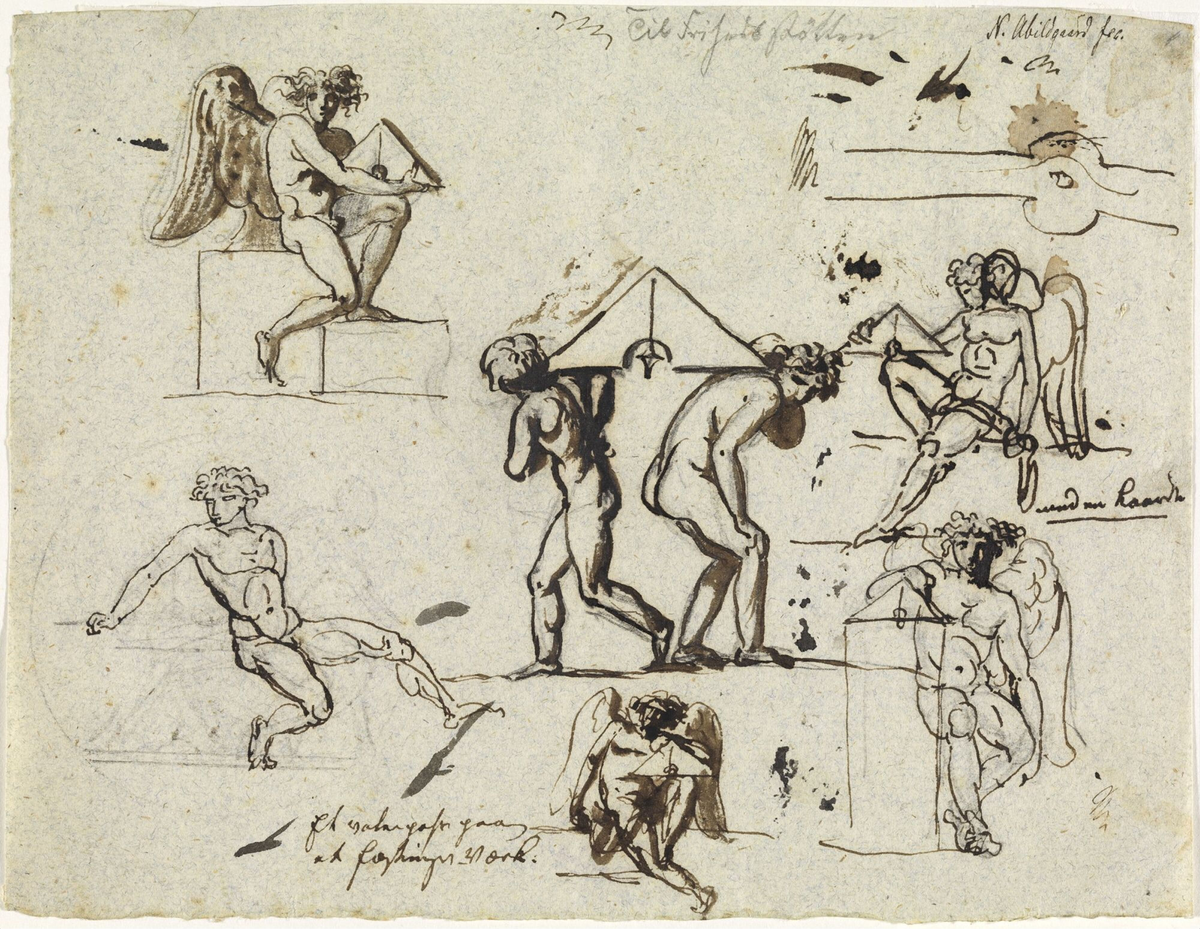 Til Frihedsstøtten
N. Abildgaard fec.
uden haardt
Et vaterpass paa
et fæstnings Værk.